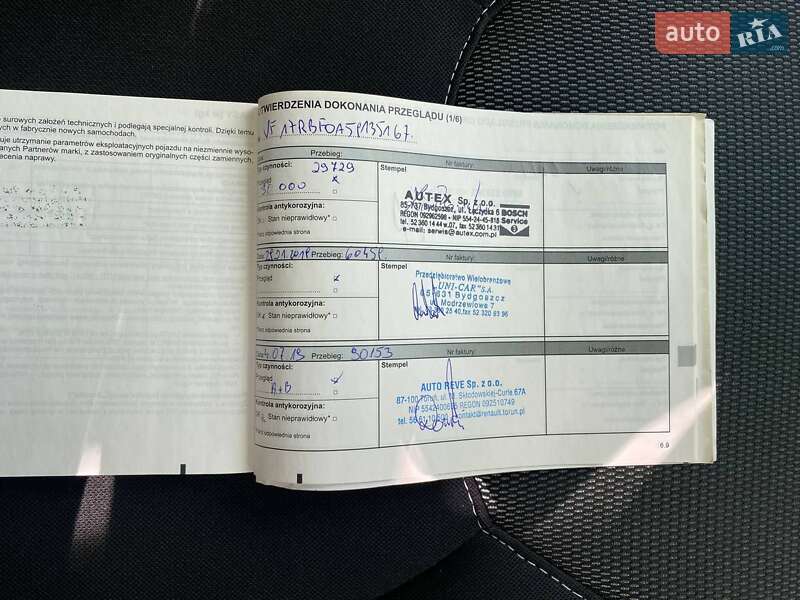 auto RIA.com
surowych założeń technicznych i podlegają specjalnej kontroli. Dzięki temu
ch w fabrycznie nowych samochodach.
uje utrzymanie parametrów eksploatacyjnych pojazdu na niezmiennie wyso-
anych Partnerów marki, z zastosowaniem oryginalnych części zamiennych,
ecenia naprawy.
TWIERDZENIA DOKONANIA PRZEGLĄDU (1/6)
VF17RBF0A59135167
Przebieg: Nr faktury:
29729
Typ czynności: Stempel Uwagi/różne
Przegląd
Kontrola antykorozyjna:
OK Stan nieprawidłowy*
odpowiednia strona
AUTEX Sp. z o.o.
85-737 Bydgoszcz, ul. Łęczycka 6
REGON 092962598 • NIP 554-24-45-818
tel. 52 360 14 44 w.07, fax 52 360 14 31
e-mail: serwis@autex.com.pl
BOSCH
Service
Przebieg: Nr faktury:
Typ czynności: Stempel Uwagi/różne
Przegląd
Kontrola antykorozyjna:
OK Stan nieprawidłowy*
odpowiednia strona
Przedsiębiorstwo Wielobranżowe
"UNI-CAR" S.A.
Bydgoszcz
ul. Modrzewiowa 7
fax 52 320 93 96
4.07.19 Przebieg: 90153 Nr faktury:
Typ czynności: Stempel Uwagi/różne
Przegląd
A+B
Kontrola antykorozyjna:
OK Stan nieprawidłowy*
odpowiednia strona
AUTO REVE Sp. z o.o.
87-100 Toruń, ul. M. Skłodowskiej-Curie 67A
REGON 092510749
kontakt@renault.torun.pl
6.9